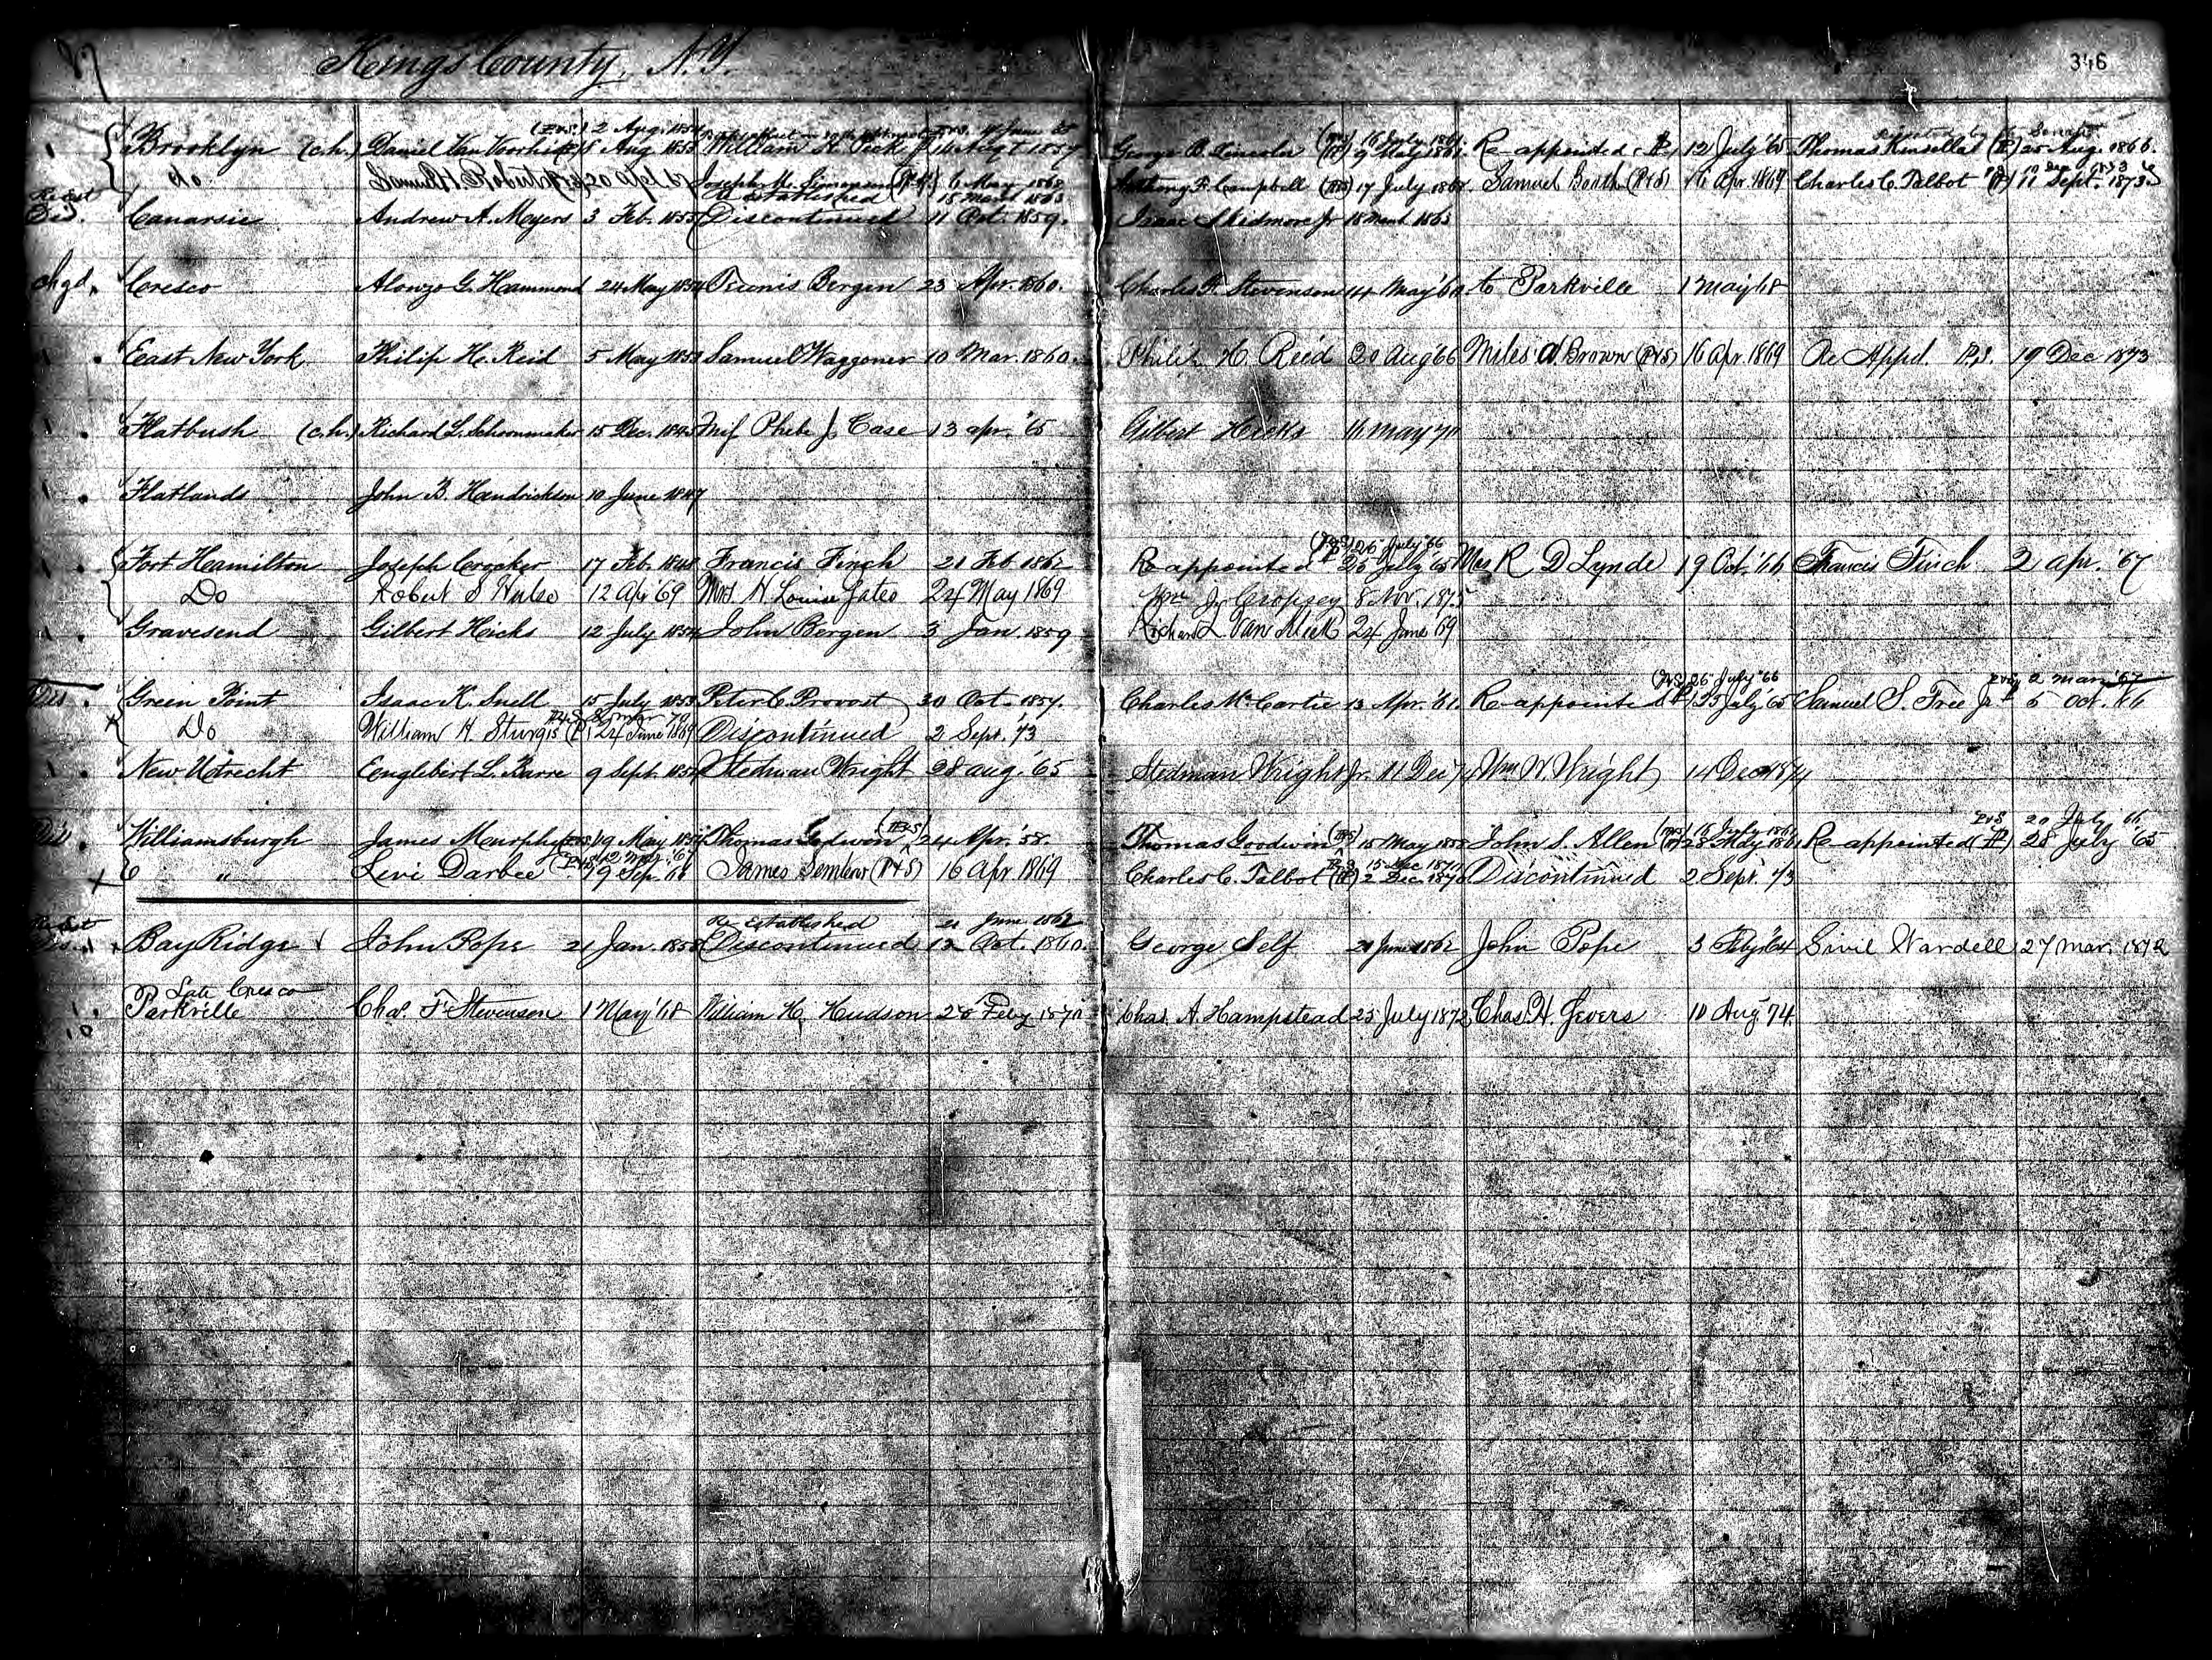 Kings County, N.Y.
346
Brooklyn (c.h.) Daniel Van Voorhis 18 Aug 1853 William H. Peck 14 Aug 1857 George B. Lincoln 9 May 1861. Re-appointed P 12 July '65 Thomas Kinsella (P) 20 Aug. 1866.
(P&S) 2 Aug. 1854 (P&S) 16 July 1861 Rejected by the Senate
do Samuel H. Roberts 20 Apl. 67 Joseph M. Simonson 6 May 1868 Anthony F. Campbell (P&S) 17 July 1867. Samuel Booth (P&S) 16 Apr. 1869 Charles C. Talbot (P) 11 Sept. 1873
Re-established 18 March 1863
Dis. Canarsie Andrew A. Meyers 3 Feb. 1855 Discontinued 11 Oct. 1859. Isaac Skidmore Jr 18 March 1863
Chgd. Cresco Alonzo G. Hammond 24 May 1854 Teunis Bergen 23 Apr. 1860. Charles F. Stevenson 14 May '60 to Parkville 1 May '68
East New York Philip H. Reid 5 May 1853 Samuel Waggoner 10 Mar. 1860. Philip H. Reid 20 Aug '66 Miles A. Brown (P&S) 16 Apr. 1869 Re Appd. P.S. 19 Dec 1873
Flatbush (c.h.) Richard L. Schoonmaker 15 Dec. 1845 Mis Phebe J. Case 13 apr. '65 Gilbert Hicks 16 May '70
Flatlands John B. Hendrickson 10 June 1847
(P&S) 26 July '66
Fort Hamilton Joseph Crocker 17 Feb. 1848 Francis Finch 21 Feb 1862 Re-appointed P 25 July '65 Mrs R D Lynde 19 Oct. '66 Francis Finch 2 apr. '67
Do Robert S Hulse 12 Apr '69 Mrs. H. Louisa Gates 24 May 1869 Wm J. Cropsey 8 Nov. 1875
Gravesend Gilbert Hicks 12 July 1854 John Bergen 3 Jan. 1859 Richard L Van Kleek 24 June '69
(P&S) 26 July '66 P&S 2 Mar '67
Dis. Green Point Isaac K. Snell 15 July 1853 Peter C. Provost 30 Oct. 1857. Charles McCartie 13 Apr. '61. Re-appointed P 25 July '65 Samuel S. Free Jr P 5 Oct. '66
Do William H. Sturgis (P) 24 June 1869 Discontinued 2 Sept. '73
New Utrecht Englebert L. Barre 9 Sept. 1854 Stedman Wright 28 aug. '65 Stedman Wright Jr. 11 Dec '74 Wm W. Wright 14 Dec 1874
(P&S) (P&S) 16 July 1861 P&S 20 July 66
Dis. Williamsburgh James Murphy 19 May 1854 Thomas Godwin 24 Apr. '58. Thomas Goodwin (P&S) 15 May 1858 John S. Allen (P) 28 May 1861 Re-appointed (P) 28 July '65
" Levi Darbee 9 Sep. '66 James Gembro (P&S) 16 Apr 1869 Charles C. Talbot (P) 2 Dec. 1870 Discontinued 2 Sept. '73
P.S. 15 Dec 1870
Re-Established 21 June 1862
Dis. Bay Ridge John Pope 21 Jan. 1858 Discontinued 12 Oct. 1860. George Self 21 June 1862 John Pope 3 Feby '64 Sivil Wardell 27 Mar. 1872
Late Cresco
Parkville Chas. F. Stevenson 1 May '68 William H. Hudson 28 Feby 1870 Chas. A. Hampstead 25 July 1872 Chas. H. Gevers 10 Aug '74.
10